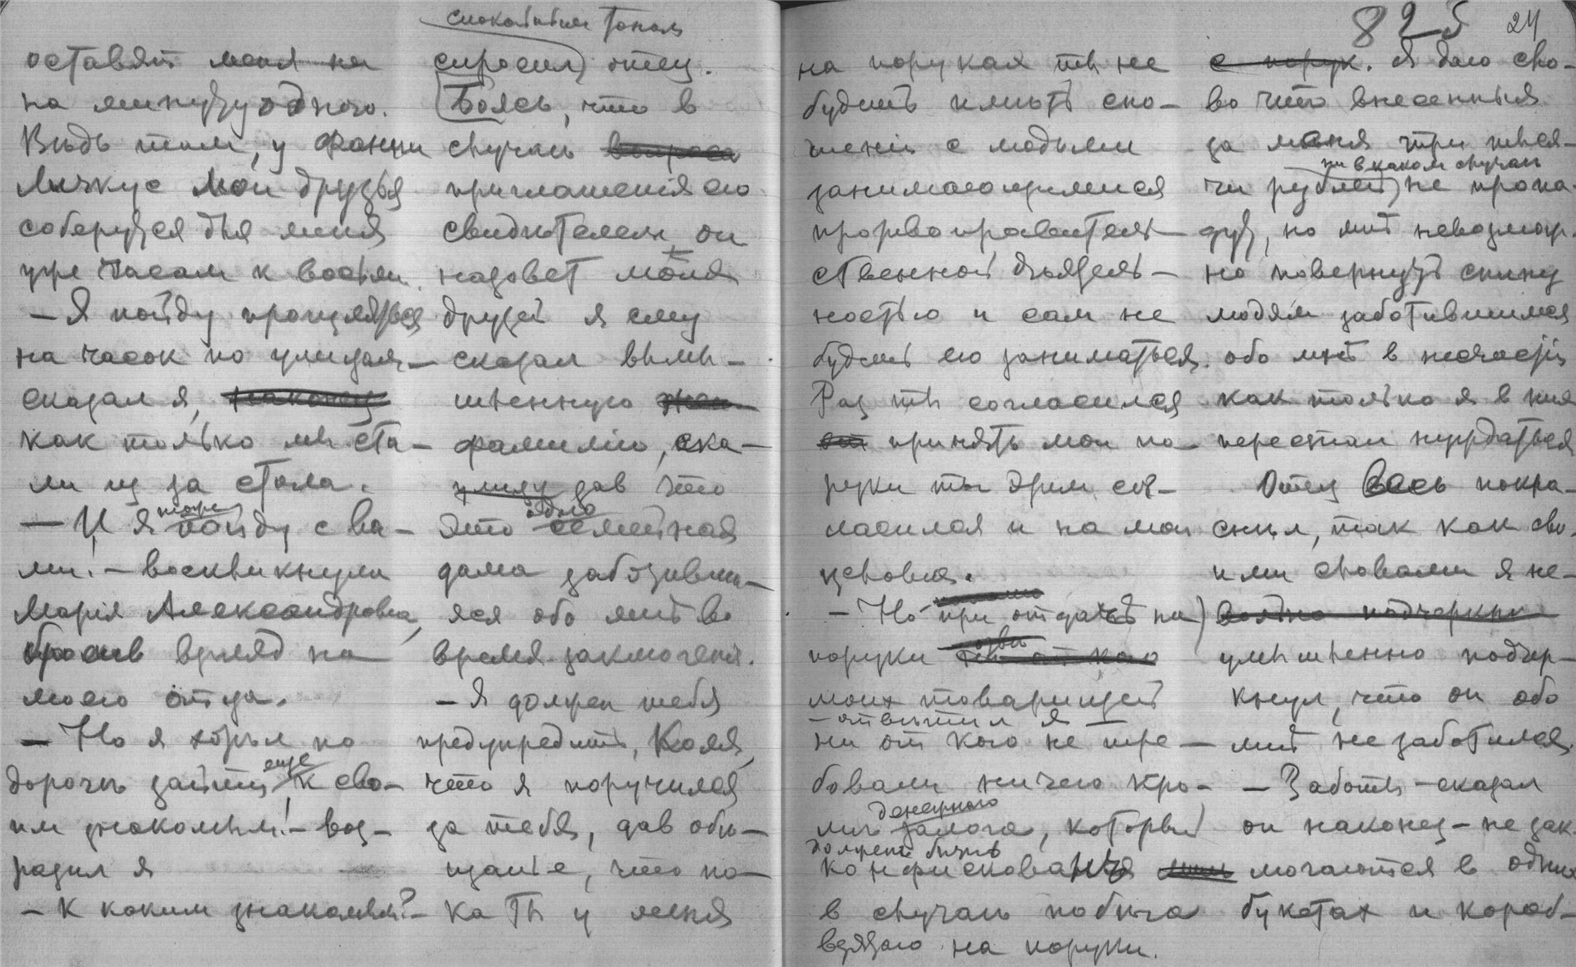 оставят меня ни
на минуту одного.
Ведь там, у Фанни
Личкус мои друзья
соберутся для меня
уже часам к восьми.
— Я пойду прощаться
на часок по улицам —
сказал я,
как только мы вста-
ли из за стола.
— И я тоже пойду с ва-
ми. — воскликнула
Марія Александровна,
бросив взгляд на
моего отца.
— Но я хотел по
дороге зайти еще к сво-
им знакомым! — воз-
разил я
— К каким знакомым? —
спокойным тоном
спросил отец.
Боясь, что в
случае вопроса
приглашенія его
свидетелем, он
назовет моих
друзей я ему
сказал вымы-
шленную
фамилію, ска-
зав что
это одна семейная
дама заботивша-
яся обо мне во
время заключенія.
— Я должен тебя
предупредить, Коля,
что я поручился
за тебя, дав обе-
щаніе, что по-
ка ты у меня
825 24
на поруках ты не
будешь иметь сно-
шеній с людьми
занимающимися
противоправитель-
ственной деятель-
ностью и сам не
будешь ею заниматься.
Раз ты согласился
принять мои по-
руки ты этим со-
гласился и на мои
условія.
— Но при отдаче на
поруки
моих товарищей
— ответил я —
ни от кого не тре-
бовали ничего кро-
ме денежного залога, который
должен быть
конфискован
в случае побега
взятаго на поруки.
с порук. Я даю сло-
во что внесенныя
за меня три тыся-
чи рублей ни в каком случае не пропа-
дут, но мне невозмож-
но повернуть спину
людям заботившимся
обо мне в несчастіи
как только я в них
перестал нуждаться
Отец весь покра-
снел, так как сво-
ими словами я не-
вольно подчеркнул
умышленно подчер-
кнул, что он обо
мне не заботился.
— Заботы — сказал
он наконец — не зак-
лючаются в одних
букетах и короб-